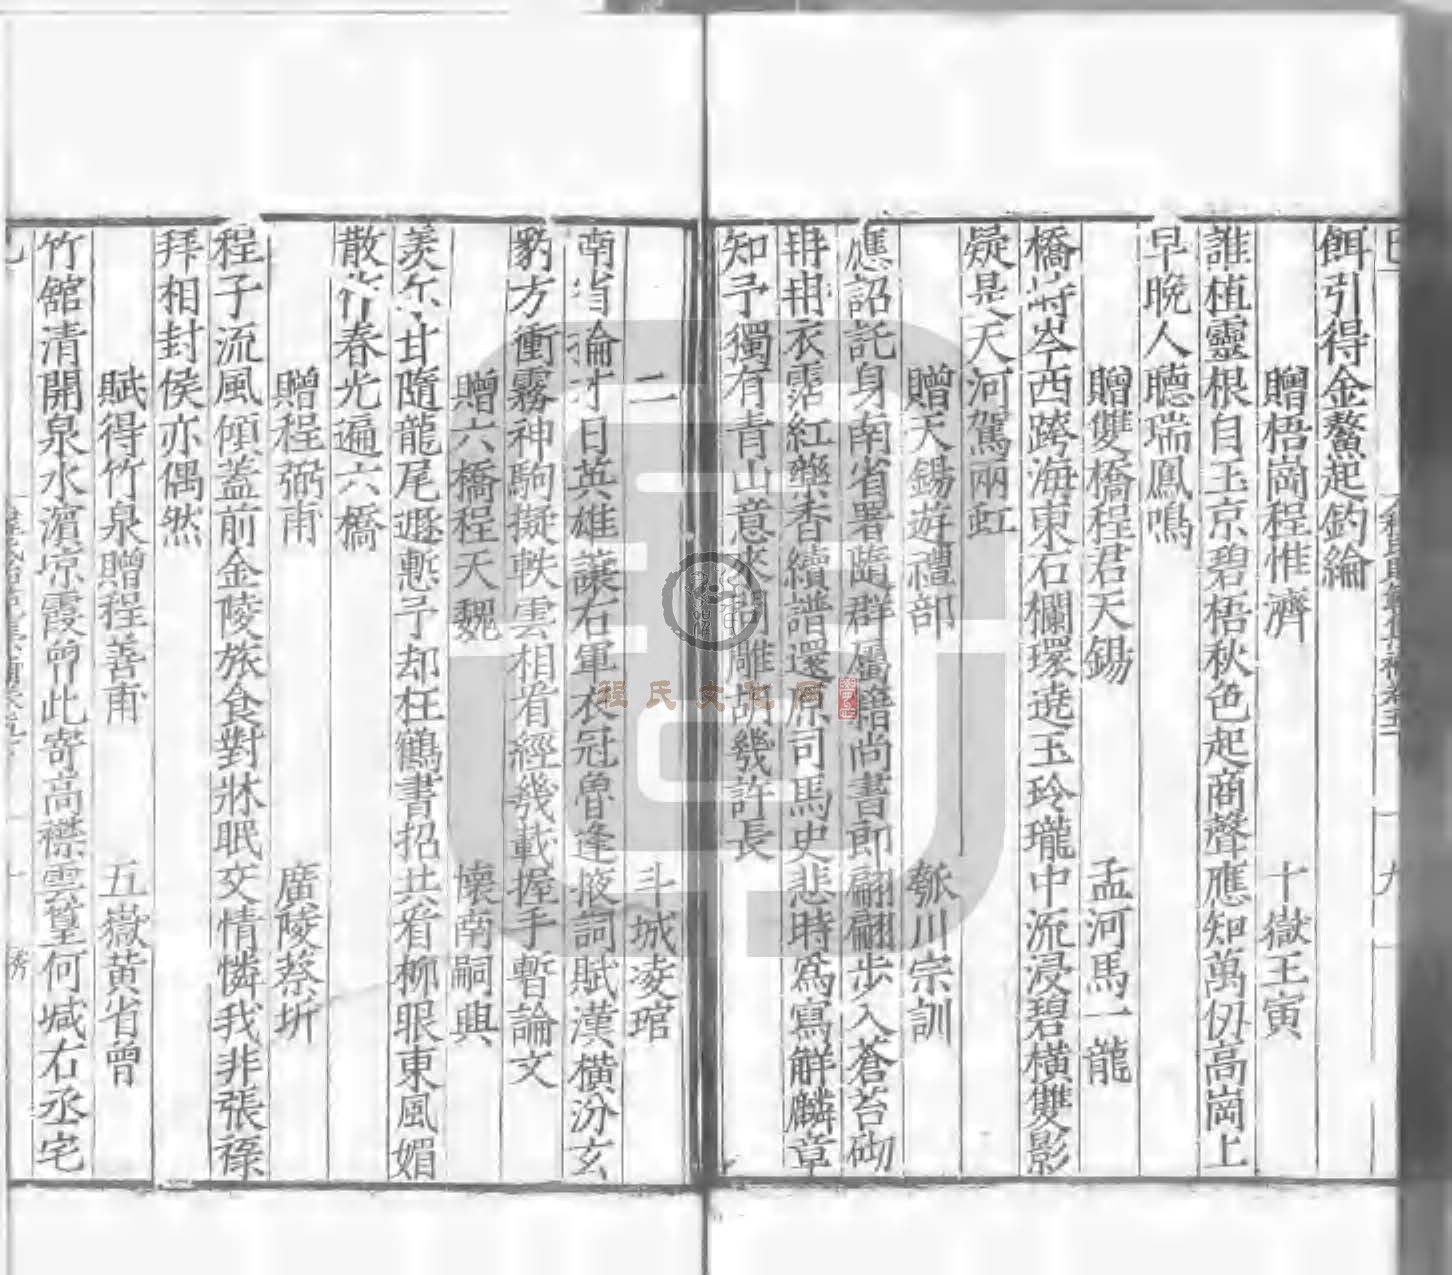 餌引得金鰲起釣綸
贈梧岡程惟濟 十嶽王寅
誰植靈根自玉京碧梧秋色起商聲應知萬仭高崗上
早晚人聽瑞鳳鳴
贈雙橋程君天錫 孟河馬一龍
橋岑西跨海東石欄環遶玉玲瓏中流浸碧橫雙影
疑是天河駕兩虹
贈天錫遊禮部 瓠川宗訓
應詔託身南省署隨群尚書郎翩翩步入蒼苔砌
冉冉衣霑紅藥香續譜還原司馬史悲時爲寫觧麟章
知予獨有青山意來胡幾許長
二 斗城凌琯
南省掄才日英雄讓右軍衣冠魯逢掖詞賦漢橫汾玄
豹方衝霧神駒擬軼雲相看經幾載握手暫論文
贈六橋程天魏 懷南嗣興
羨尔甘隨龍尾遯慙予却枉鶴書招共看柳眼東風媚
散作春光遍六橋
贈程弼甫 廣陵蔡圻
程子流風傾蓋前金陵旅食對牀眠文情憐我非張祿
拜相封侯亦偶然
賦得竹泉贈程善甫 五嶽黃省曾
竹舘清開泉水濵凉霞曾此寄高襟雲篁何減右丞宅
程氏文化网